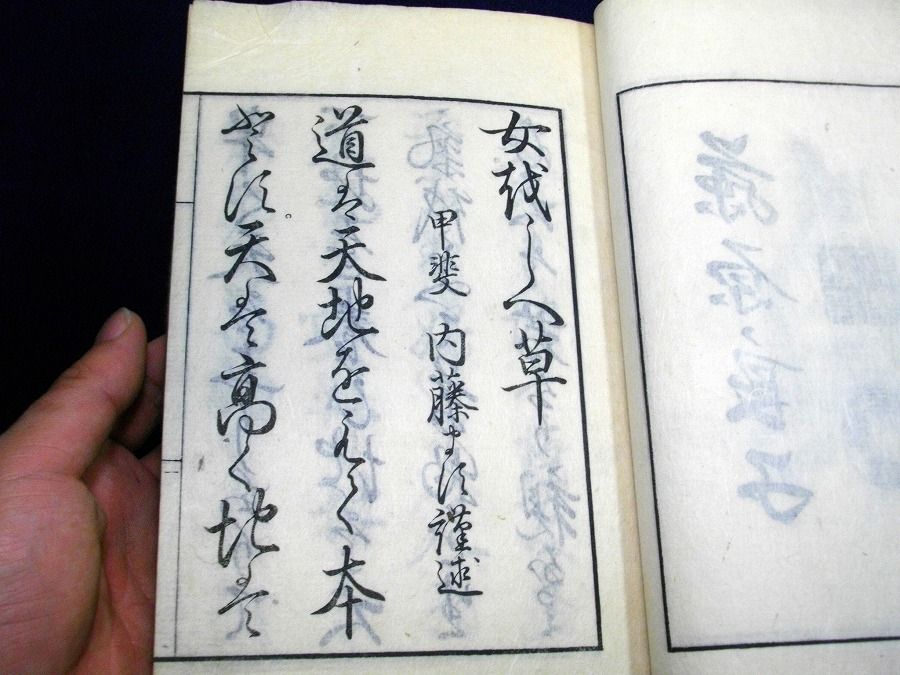 女をしへ草
甲斐 内藤ます謹述
道は天地をもつて本
とす。天は高く地は